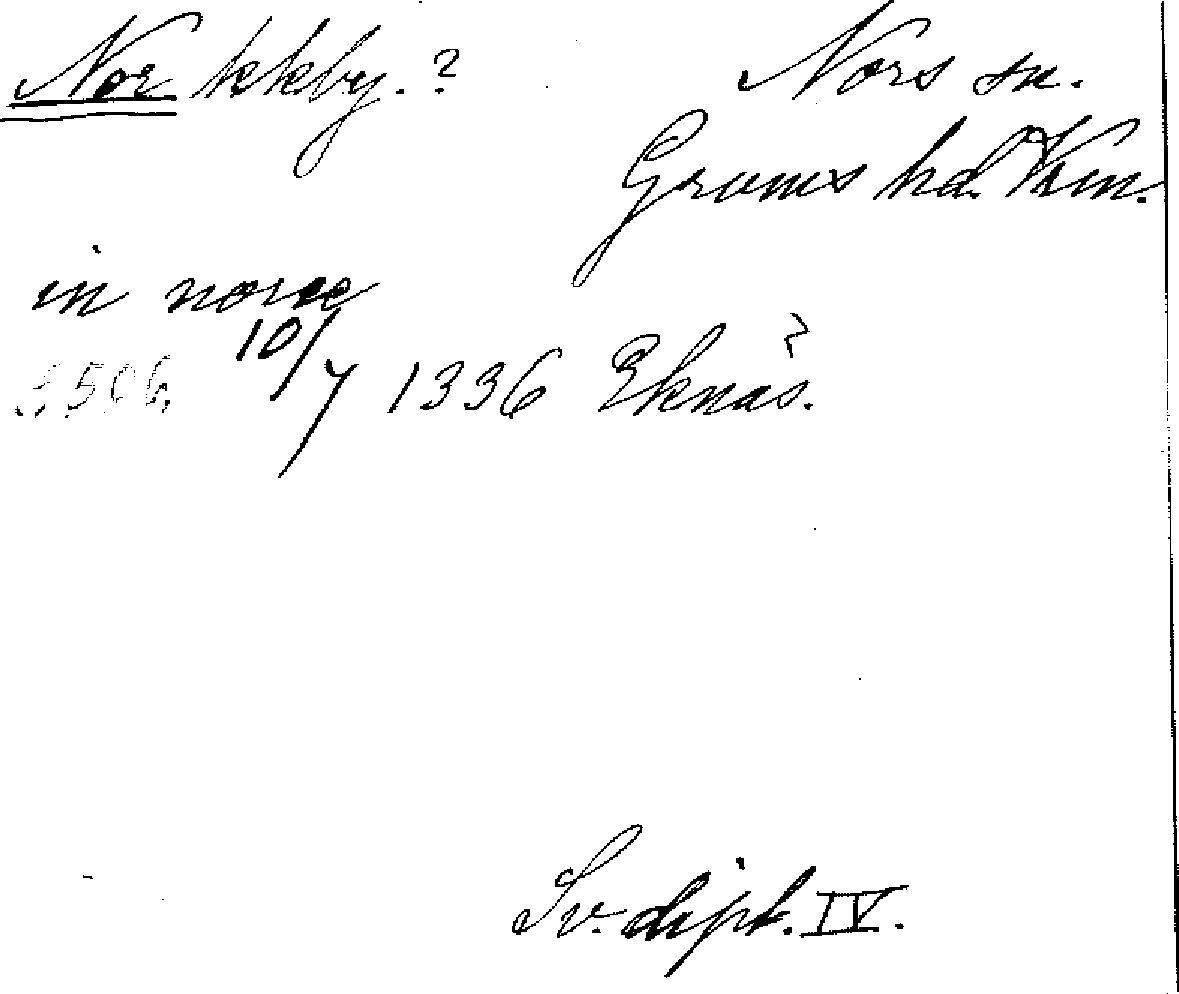 Nor kkby. ? Nors sn.
Grums hd. Vrm.
in noree
10/7 1336 Eknäs. ?
Sv. dipl. IV.